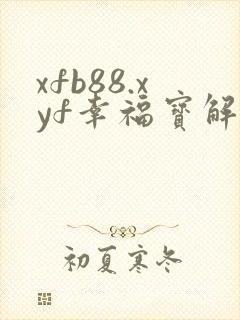 xfb88.x
yf幸福寳解
初夏寒冬